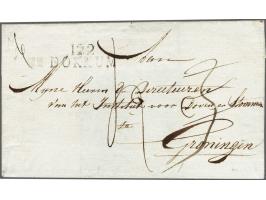 122
DOKKUM
Aan
Myne Heeren de Directeuren
van het Instituut voor Doven en Stommen
te
Groningen